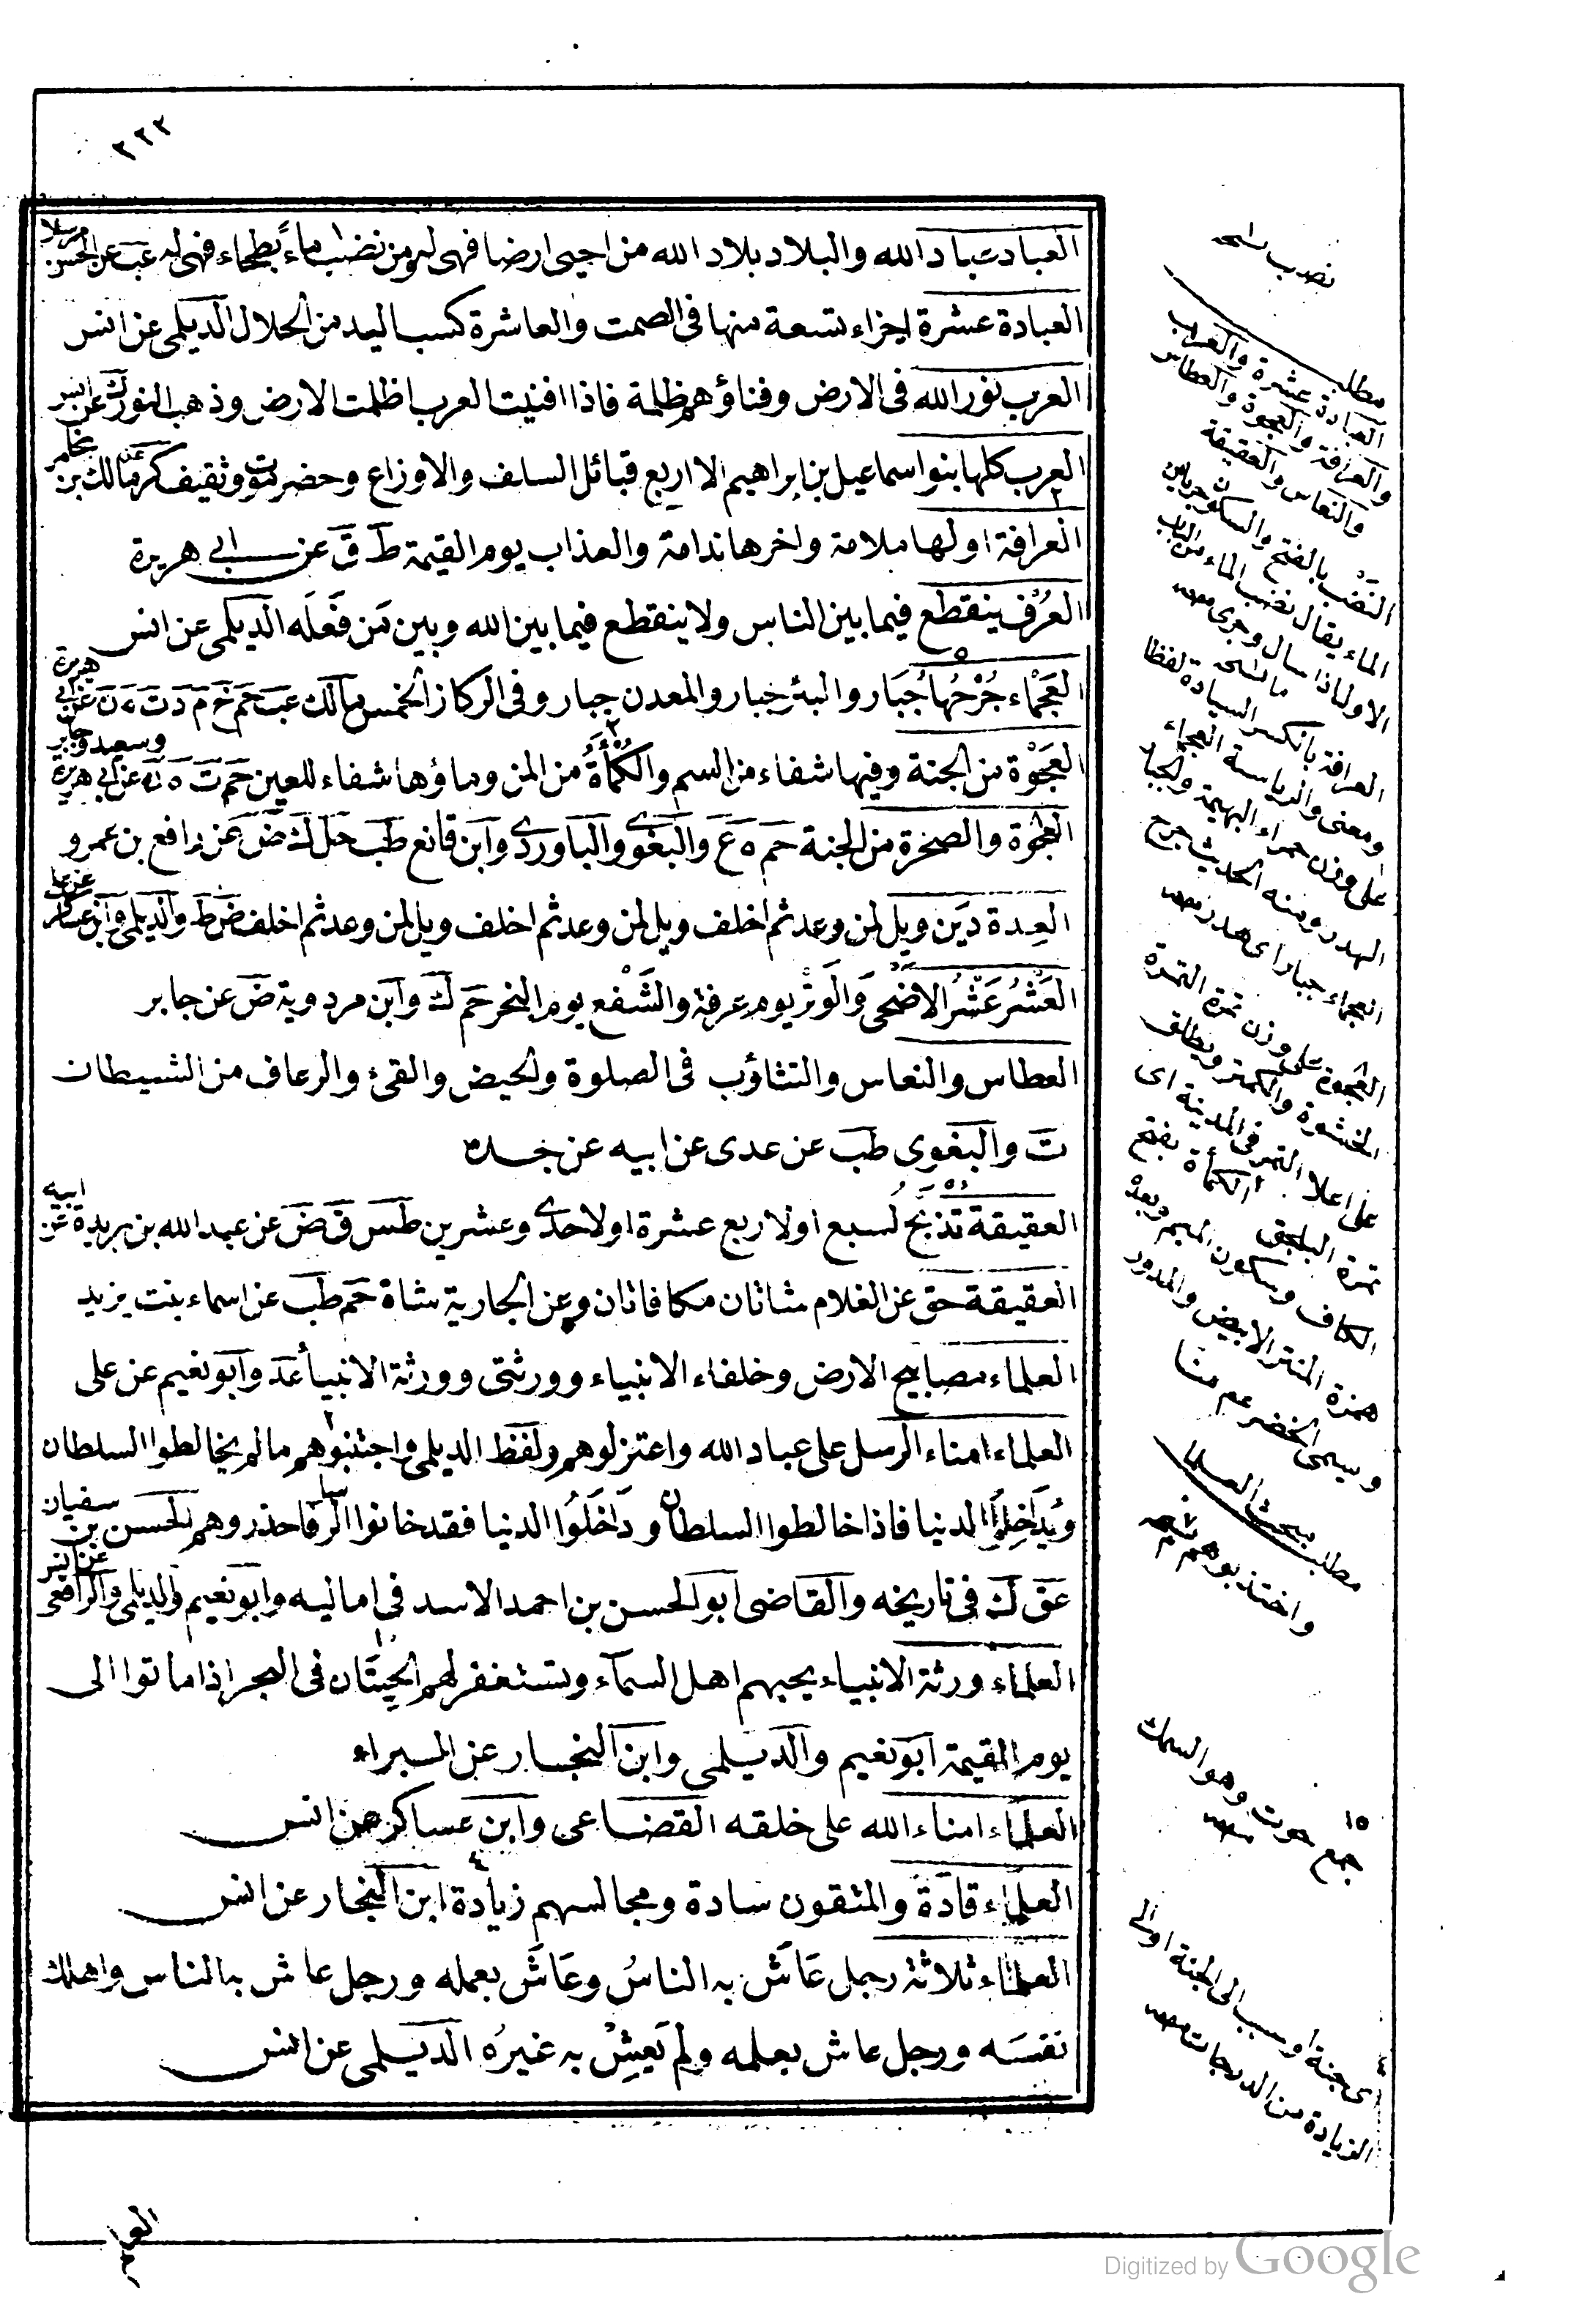 ٣٢٣
العباد عباد الله والبلاد بلاد الله من احيى ارضا فهى له ومن نضب ماء بطحاء فهى له عب عن الحسن مرسلا
العبادة عشرة اجزاء تسعة منها فى الصمت والعاشرة كسب اليد من الحلال الديلمى عن انس
العرب نور الله فى الارض وفناؤهم ظلمة فاذا افنيت العرب اظلمت الارض وذهب النور ك عن انس
العرب كلها بنوا اسماعيل بن ابراهيم الا اربع قبائل السلف والاوزاع وحضرموت وثقيف كر عن مالك بن يخامر
العرافة اولها ملامة واخرها ندامة والعذاب يوم القيمة ط ق عن ابى هريرة
العُرْف ينقطع فيما بين الناس ولا ينقطع فيما بين الله وبين من فَعَلَه الديلمى عن انس
العَجْماء جُرْحُها جُبَار والبئر جبار والمعدن جبار وفى الركاز الخمس مالك عب حم خ م د ت ه ن عن ابى هريرة
العَجْوة من الجنة وفيها شفاء من السم والكَمْأَةُ من المن وماؤها شفاء للعين حم ت ه ن عن ابى هريرة وسعيد وجابر
العجوة والصخرة من الجنة حم ه ع والبغوى والباوردى وابن قانع طب حل ك ض عن رافع بن عمرو
العِدة دَين ويل لمن وعد ثم اخلف ويل لمن وعد ثم اخلف ويل لمن وعد ثم اخلف ض ط والديلمى وابن عساكر عن على
العَشْرُ عَشْرُ الاضْحى وَالوَتر يوم عرفة والشَفْع يوم النحر حم ك وابن مردوية ض عن جابر
العطاس والنعاس والتثاؤب فى الصلوة والحيض والقئ والرعاف من الشيطان
ت والبغوى طب عن عدى عن ابيه عن جده
العقيقة تُذْبَحُ لسبع اولاربع عشرة اولاحدى وعشرين طس ق ض عن عبد الله بن بريدة عن ابيه
العقيقة حق عن الغلام شاتان مكافاتان وعن الجارية شاة حم طب عن اسماء بنت يزيد
العلماء مصابيح الارض وخلفاء الانبياء وورثتى وورثة الانبياء عد وابو نعيم عن على
العلماء امناء الرسل على عباد الله واعتزلوهم ولفظ الديلمى واجتنبوهم مالم يخالطوا السلطان
ويُدَاخِلُوا الدنيا فاذا خالطوا السلطان ودَاخَلُوا الدنيا فقد خانوا الرسل فاحذروهم الحسن بن سفيان
عق ك فى تاريخه والقاضى ابو الحسن بن احمد الاسد فى اماليه وابو نعيم والديلمى والرافعى عن انس
العلماء ورثة الانبياء يحبهم اهل السمآء وتستغفر لهم الحِيتَان فى البحر اذا ماتوا الى
يوم القيمة ابو نعيم والديلمى وابن النجار عن البراء
العلماء امناء الله على خلقه القضاعى وابن عساكر عن انس
العلماء قادة والمتقون سادة ومجالسهم زيادة ابن النجار عن انس
العلماء ثلاثة رجل عَاشَ به الناسُ وعَاشَ بعمله ورجل عاش به الناس واهلك
نفسَه ورجل عاش بعلمه ولم يَعِشْ به غيرُه الديلمى عن انس
العرا
نضب نسخه
مطلب
العبادة عشرة والعرب
والعرافة والعجوة والعطاس
والنعاس والعقيقة
النَضْب بالفتح والسكون جريان
الماء يقال نضب الماء من الباب
الاول اذا سال وجرى
العرافة بالكسر السيادة لفظا
ومعنى والرياسة العجماء
على وزن حمراء البهيمة والجبار
الهدر ومنه الحديث جرح
العجماء جبار اى هدر
العجوة على وزن تمرة التمرة
على اعلا التمر فى المدينة اى
الكمأة بفتح
الكاف وسكون الميم وبعد
همزة الابيض والمدور
مطلب مبحث العلماء
جمع حوت وهو السمك
اى جنة او سبب الى الجنة او الى
الزيادة من الدرجات
Digitized by Google